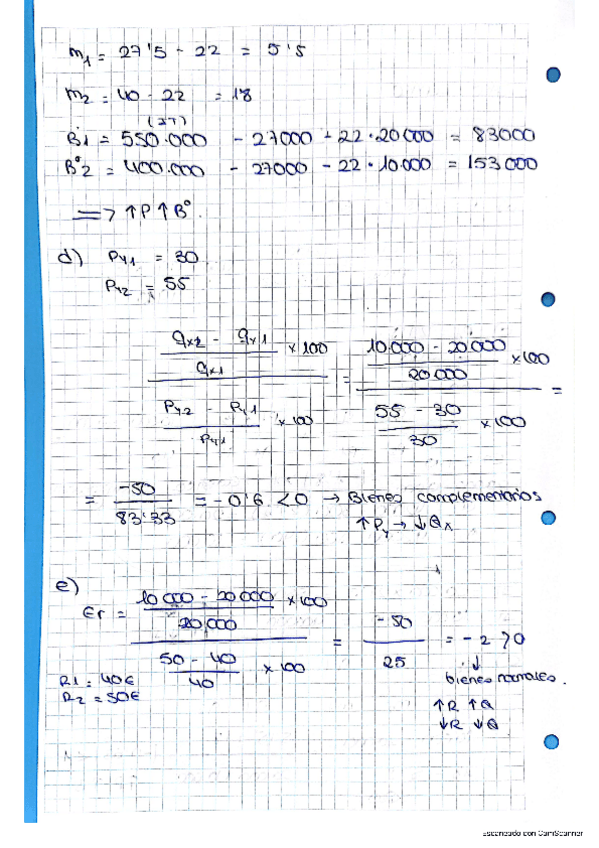 m1 = 27'5 - 22 = 5'5
m2 = 40 - 22 = 18
(IT)
B1 = 550.000 - 27000 - 22 · 20000 = 83000
Bº2 = 400.000 - 27000 - 22 · 10.000 = 153000
=> ↑P ↑Bº.
d) Py1 = 30
Py2 = 55
qx2 - qx1 / qx1 × 100 / Py2 - Py1 / Py1 × 100 = 10.000 - 20.000 / 20.000 × 100 / 55 - 30 / 30 × 100 =
= -50 / 83'33 = -0'6 < 0 → Bienes complementarios
↑Py → ↓Qx
e)
Er = 10000 - 20000 / 20,000 × 100 / 50 - 40 / 40 × 100 = -50 / 25 = -2 > 0
R1 = 40€
R2 = 50€
↓
bienes normales.
↑R ↑Q
↓R ↓Q
Escaneado con CamScanner